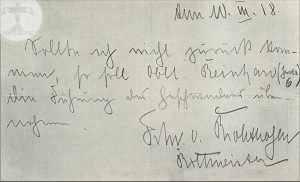 den 10. III. 18
Sollte ich nicht zurückkom-
men, so soll Oblt. Reinhard (Jasta 6)
die Führung des Geschwaders über-
nehmen.
Frhr. v. Richthofen
Rittmeister